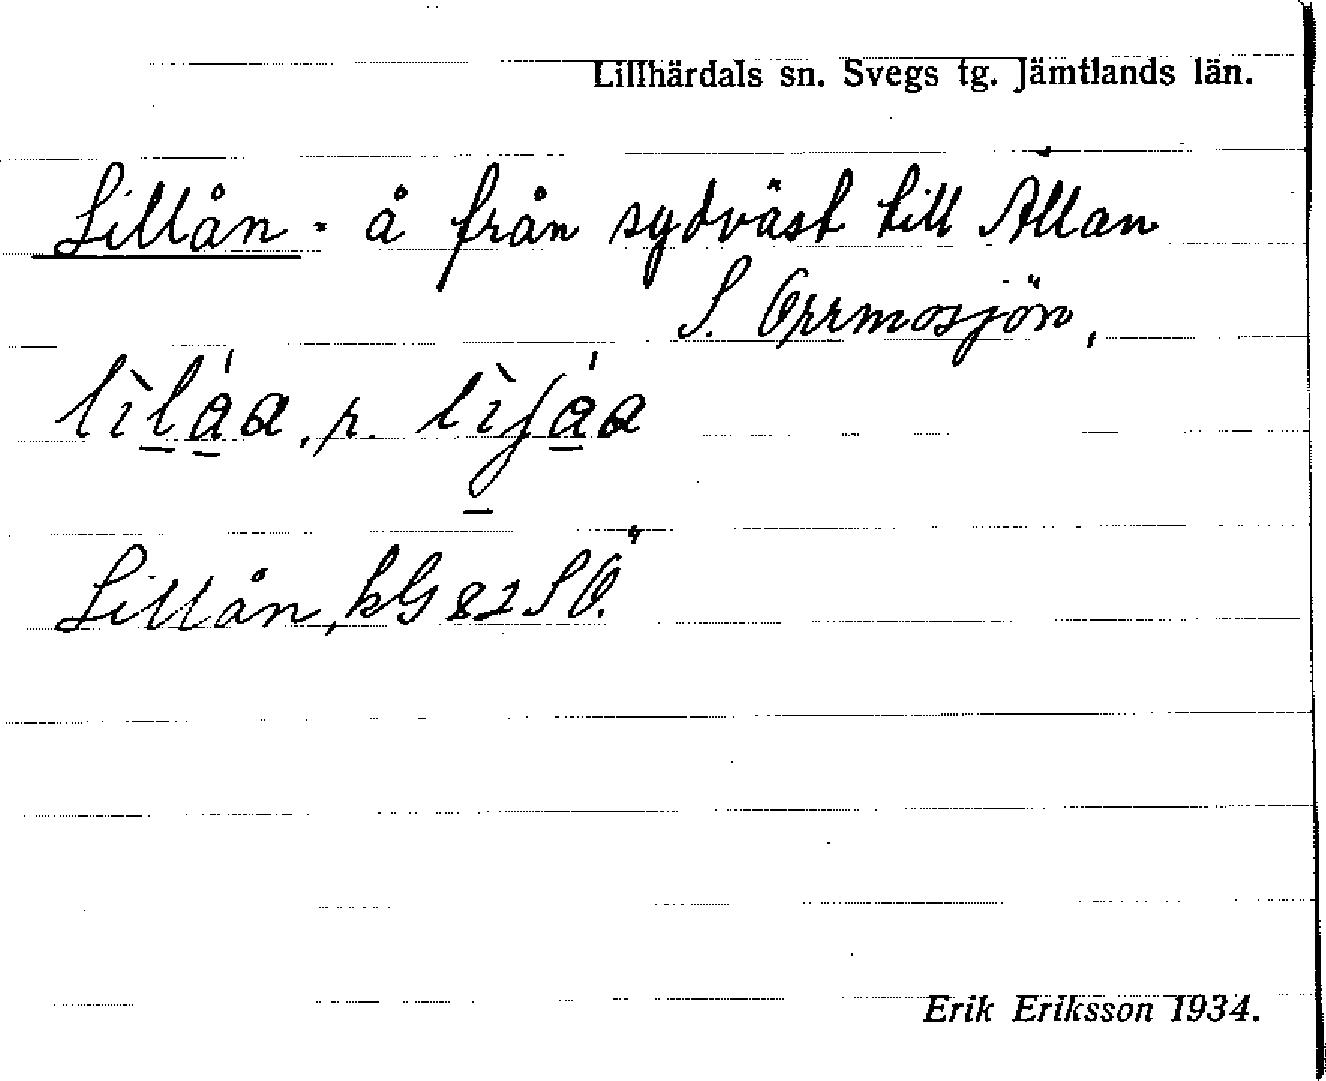 Lillhärdals sn. Svegs tg. Jämtlands län.
Lillån - å från sydväst till Ällan
S. Orrmosjön,
Lillån, kG 82 SÖ.
Erik Eriksson 1934.